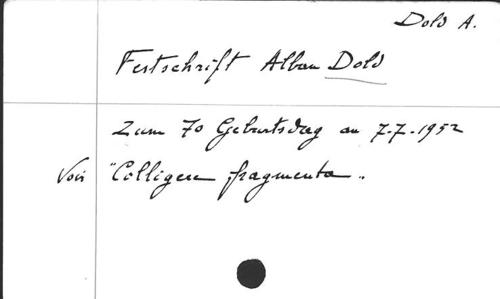 Dold A.
Festschrift Alban Dold
Zum 70 Geburtsdag an 7-7-1952
Voir "Colligere fragmenta"